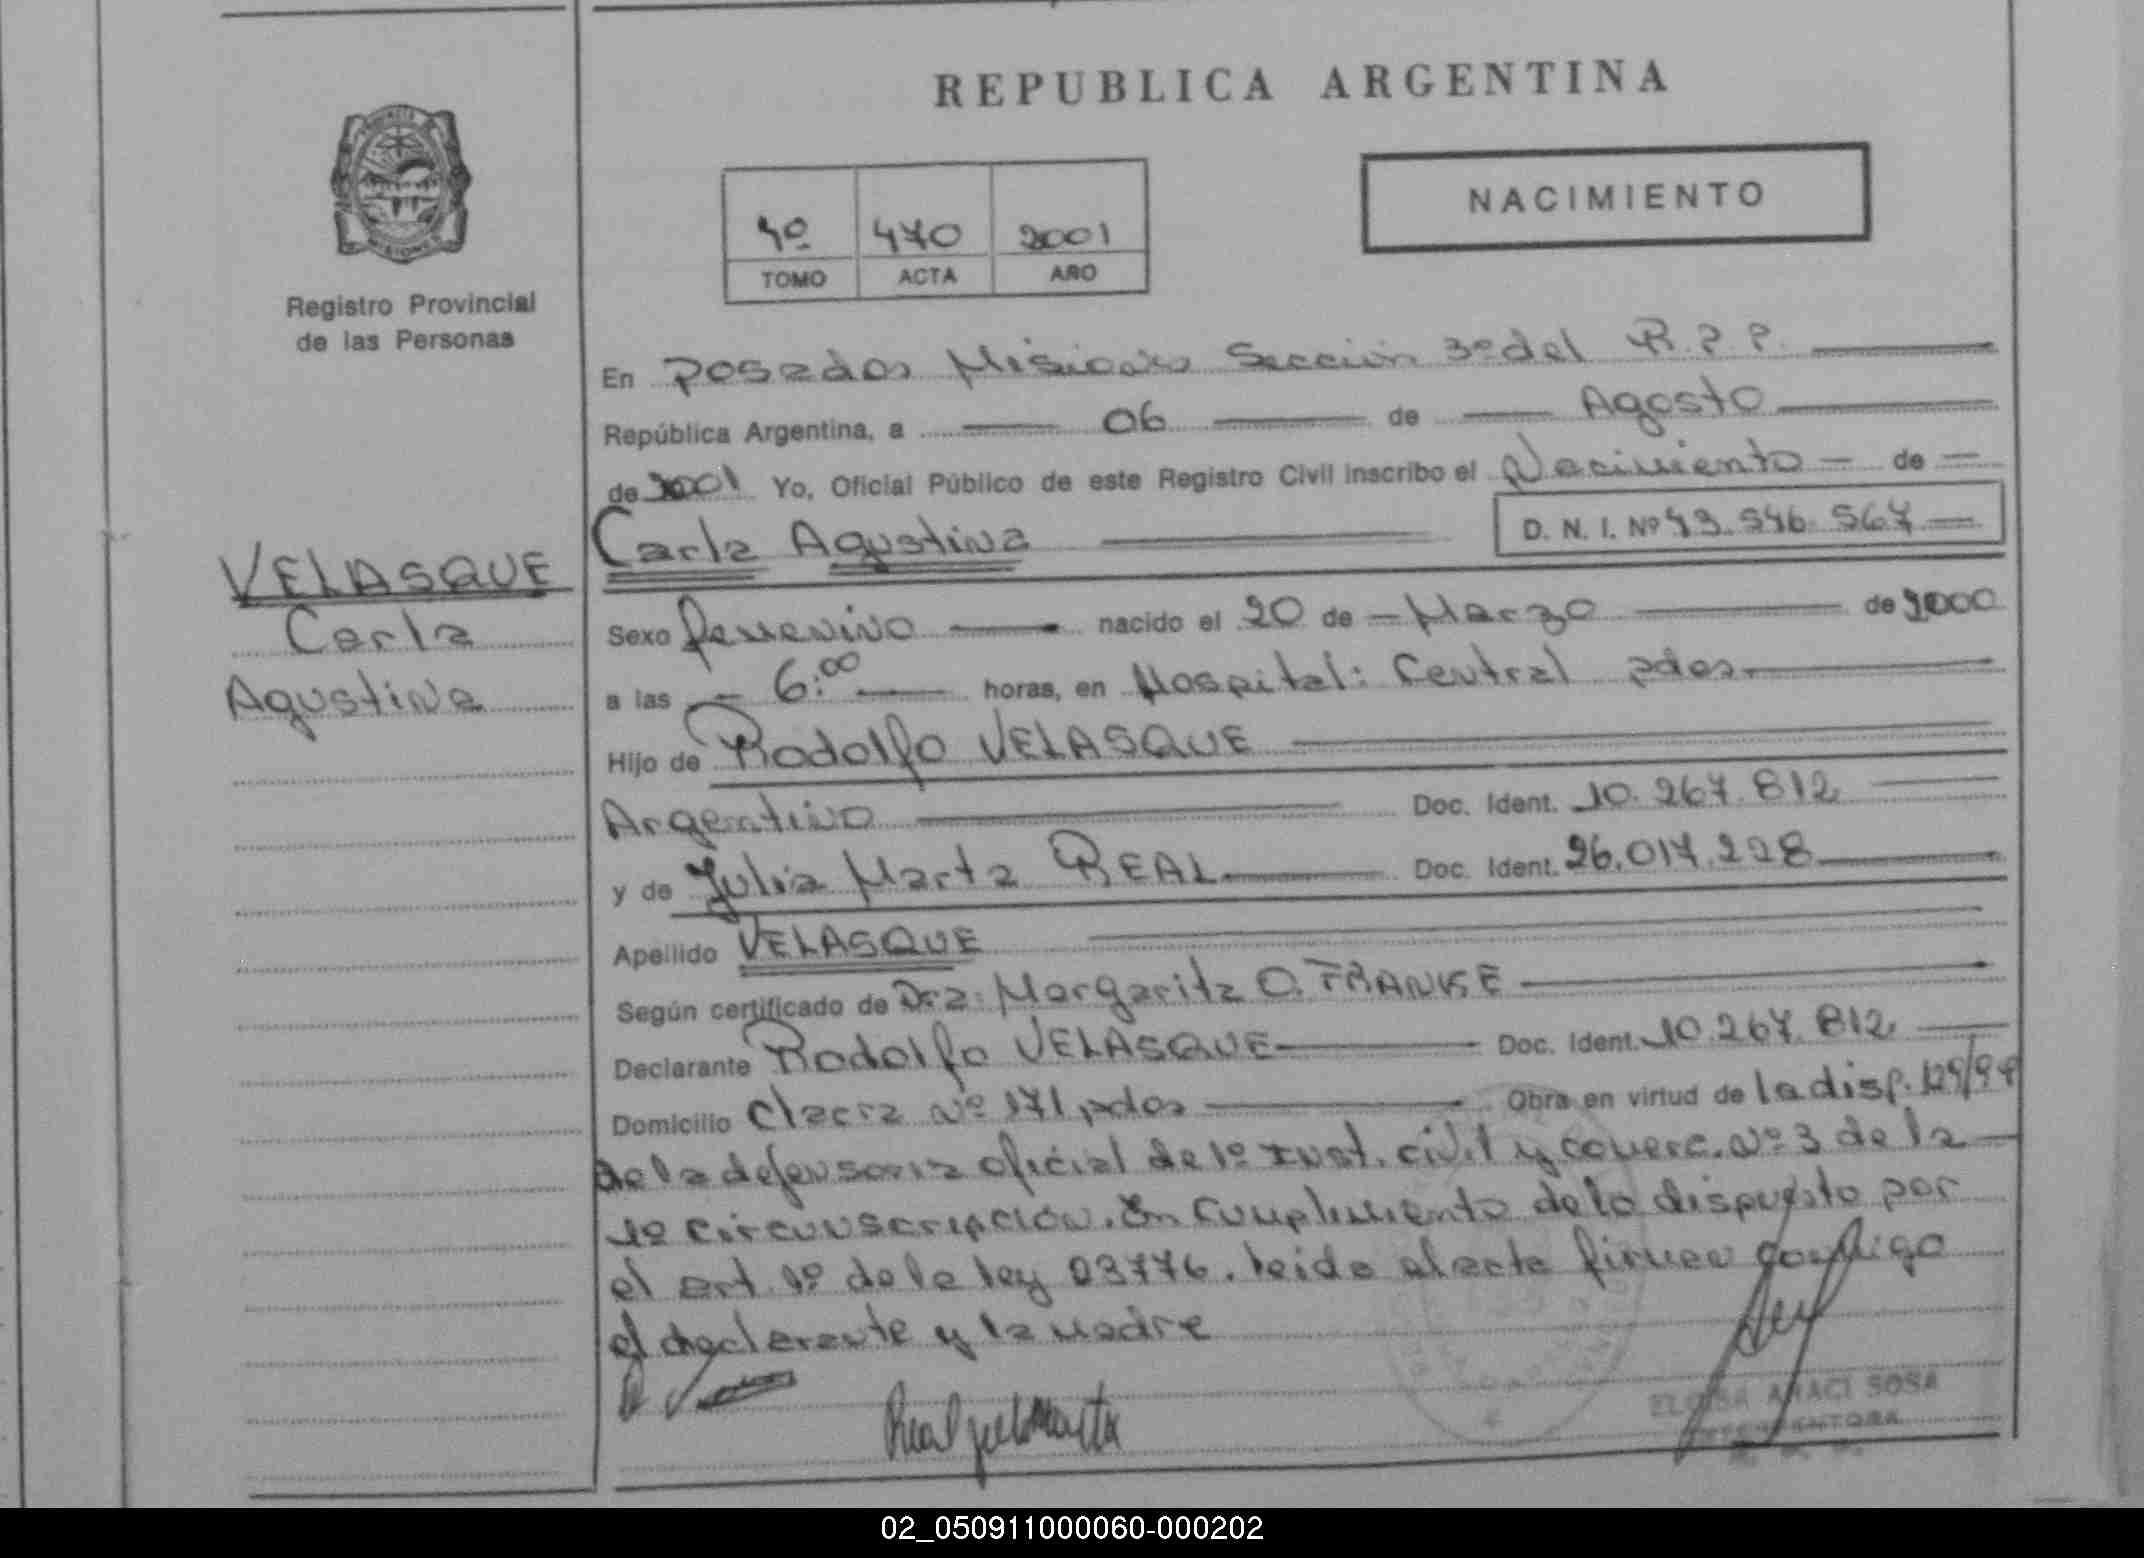 REPUBLICA ARGENTINA
NACIMIENTO
4º 470 2001
TOMO ACTA AÑO
Registro Provincial
de las Personas
VELASQUE
Carla
Agustina
En Posadas Misiones Sección 3º del R.P.P.
República Argentina, a 06 de Agosto
de 2001 Yo, Oficial Público de este Registro Civil inscribo el Nacimiento de
Carla Agustina D. N. I. Nº 43.546.567
Sexo femenino nacido el 20 de Marzo de 2000
a las 6:00 horas, en Hospital: Central pdas.
Hijo de Rodolfo VELASQUE
Argentino Doc. Ident. 10.267.812
y de Julia Marta REAL Doc. Ident. 26.017.228
Apellido VELASQUE
Según certificado de Dra: Margarita O. FRANKE
Declarante Rodolfo VELASQUE Doc. Ident. 10.267.812
Domicilio Chacra Nº 171 pdas Obra en virtud de la disp. 129/94
de la defensoria oficial de 1º Inst. civil y comerc. Nº 3 de la
1º circunscripción. En Cumplimiento de lo dispuesto por
el art. 1º de la ley 23776. leida el acta firman conmigo
el declarante y la madre
Real Julia Marta
ELOISA ARACI SOSA
02_050911000060-000202